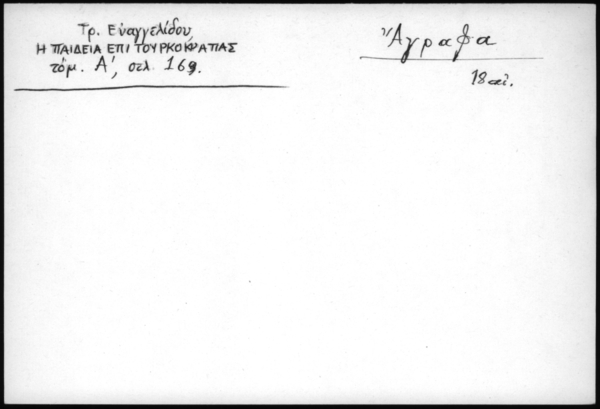 Τρ. Εὐαγγελίδου,
Η ΠΑΙΔΕΙΑ ΕΠΙ ΤΟΥΡΚΟΚΡΑΤΙΑΣ
τόμ. Α', σελ. 169.
Ἄγραφα
18 αἰ.